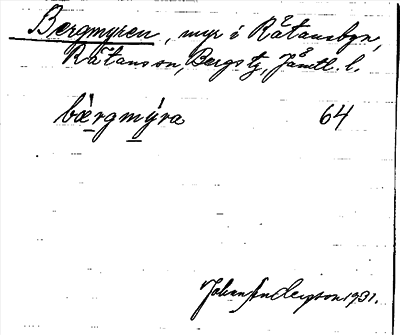 Bergmyren, myr i Råtansbyn,
Råtans sn, Bergs tg, Jämtl. l.
bærgmýra 64
Johan Andersson 1931.